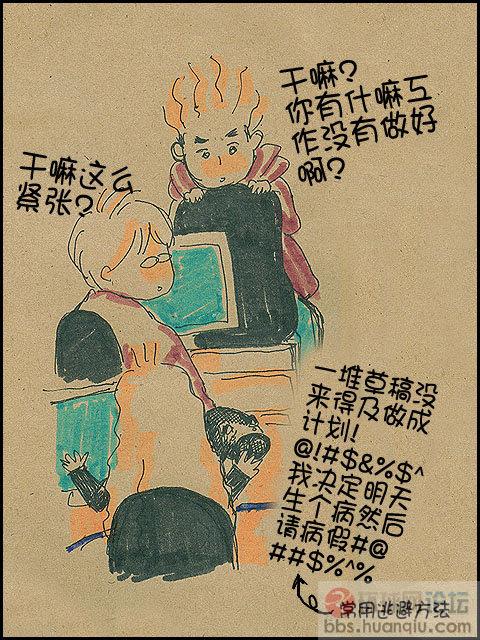 干嘛？
你有什嘛工
作没有做好
啊？
干嘛这么
紧张？
一堆草稿没
来得及做成
计划！
@!#$&%$^
我决定明天
生个病然后
请病假#@
##$%^%
常用逃避方法
环球网论坛
bbs.huanqiu.com